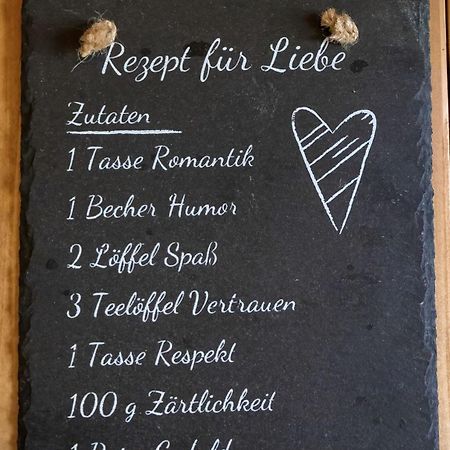 Rezept für Liebe
Zutaten
1 Tasse Romantik
1 Becher Humor
2 Löffel Spaß
3 Teelöffel Vertrauen
1 Tasse Respekt
100 g Zärtlichkeit